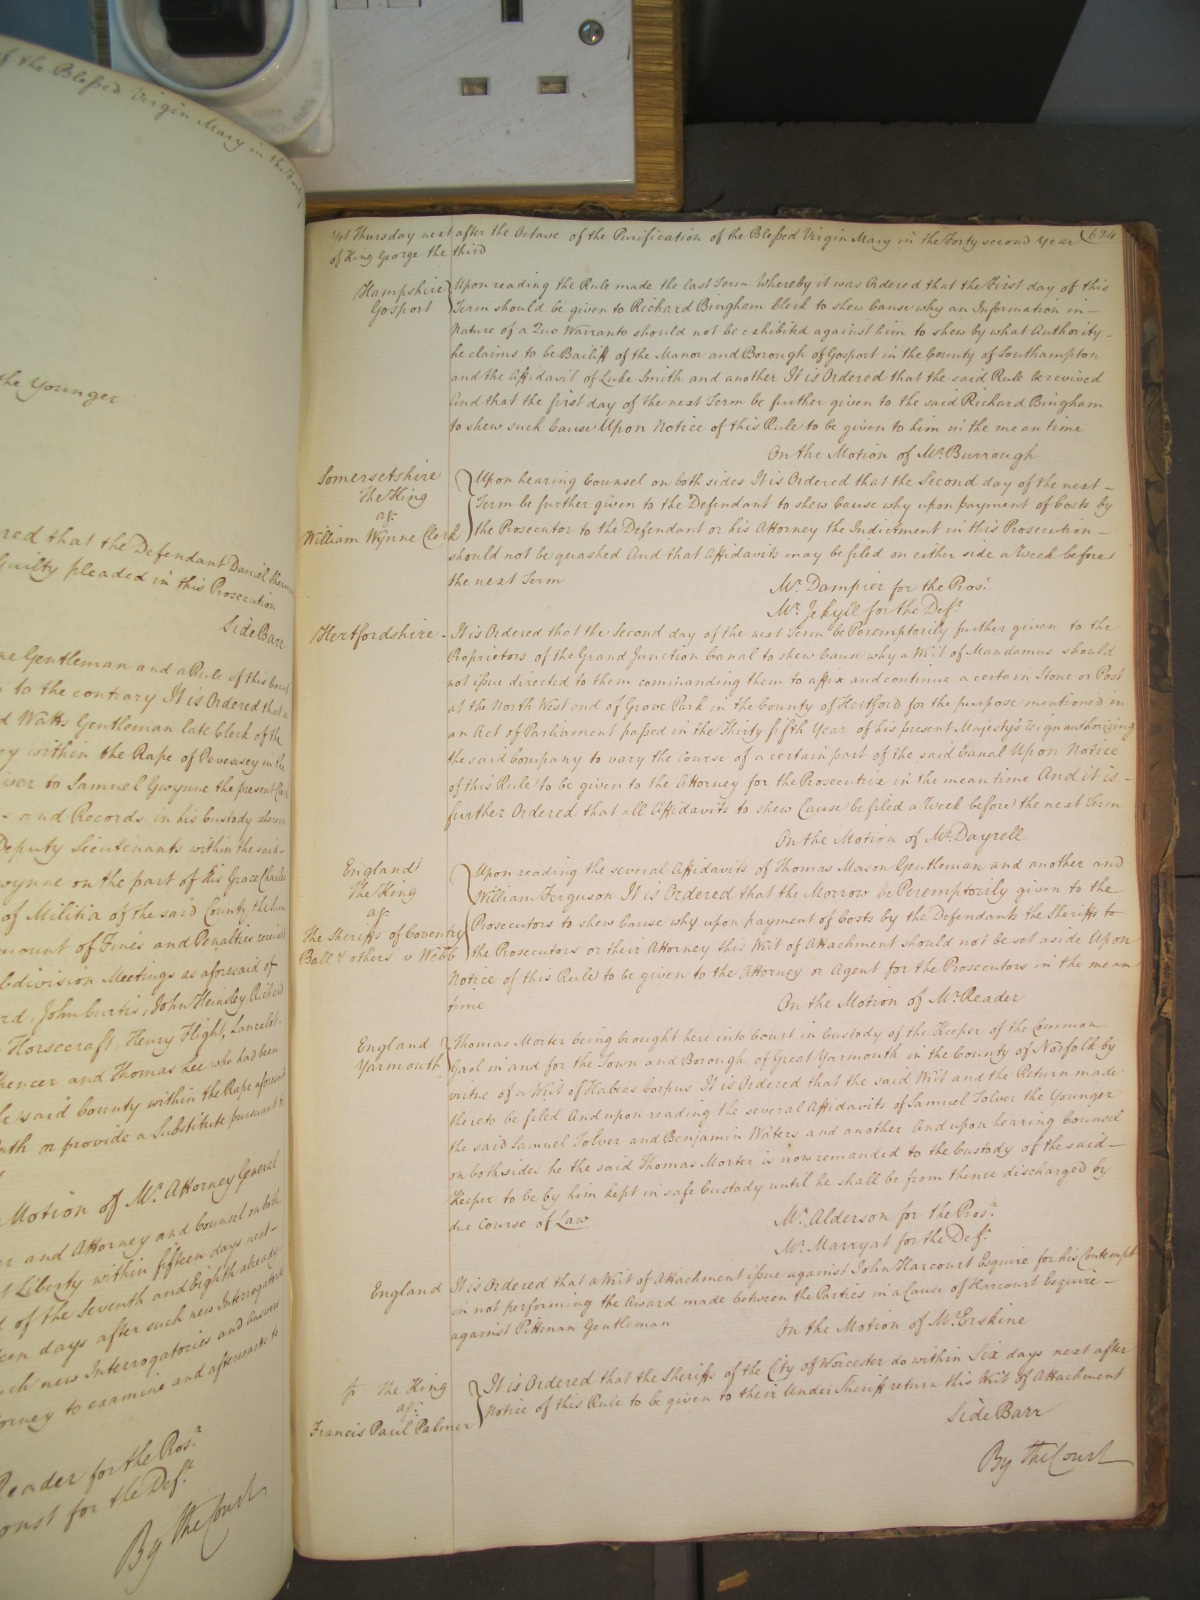 of the Blessed Virgin Mary in the Forty
the Younger
red that the Defendant Daniel
Guilty pleaded in this Prosecution
Side Barr
ne Gentleman and a Rule of this Court
to the contrary It is Ordered that a
d Watts Gentleman late Clerk of the
ey within the Rape of Pevensey in the
iver to Samuel Gwynne the present
s and Records in his Custody
Deputy Lieutenants within the said
wynne on the part of His Grace Charles
of Militia of the said County
mount of Fines and Penalties received
bdivision Meetings as aforesaid of
rd, John Curtis, John Hemsley Richard
Horsecraft, Henry Flight, Lancelot
pencer and Thomas Lee who had been
e said County within the Rape aforesaid
ath or provide a Substitute pursuant to
Motion of Mr. Attorney General
er and Attorney and Counsel on both
t Liberty within fifteen days next
of the Seventh and Eighth already
een days after such new Interrogatories
uch new Interrogatories and Answers
orney to examine and afterwards to
Reader for the Pros.r
onst for the Def.t
By the Court
Yet Thursday next after the Octave of the Purification of the Blessed Virgin Mary in the Forty second Year 694
of King George the third
Hampshire Upon reading the Rule made the last Term Whereby it was Ordered that the First day of this
Gosport Term should be given to Richard Bingham Clerk to shew Cause why an Information in
nature of a Quo Warranto should not be exhibited against him to shew by what Authority
he claims to be Bailiff of the Manor and Borough of Gosport in the County of Southampton
and the Affidavit of Luke Smith and another It is Ordered that the said Rule be revived
And that the first day of the next Term be further given to the said Richard Bingham
to shew such Cause Upon Notice of this Rule to be given to him in the mean time
On the Motion of Mr. Burrough
Somersetshire Upon hearing Counsel on both sides It is Ordered that the Second day of the next
The King Term be further given to the Defendant to shew Cause why upon payment of Costs by
agt. the Prosecutor to the Defendant or his Attorney the Indictment in this Prosecution
William Wynne Clerk should not be quashed And that Affidavits may be filed on either side a Week before
the next Term
Mr. Dampier for the Pros.r
Mr. Jekyll for the Def.t
Hertfordshire It is Ordered that the Second day of the next Term be Peremptorily further given to the
Proprietors of the Grand Junction Canal to shew Cause why a Writ of Mandamus should
not issue directed to them commanding them to affix and continue a certain Stone or Post
at the North West end of Grove Park in the County of Hertford for the purpose mentioned in
an Act of Parliament passed in the Thirty fifth Year of his present Majesty's Reign authorizing
the said Company to vary the Course of a certain part of the said Canal Upon Notice
of this Rule to be given to the Attorney for the Prosecutrix in the mean time And it is
further Ordered that all Affidavits to shew Cause be filed a Week before the next Term
On the Motion of Mr Dayrell
England Upon reading the several Affidavits of Thomas Mason Gentleman and another and
The King William Ferguson It is Ordered that the Morrow be Peremptorily given to the
agt. Prosecutors to shew Cause why upon payment of Costs by the Defendants the Sheriffs to
The Sheriffs of Coventry the Prosecutors or their Attorney this Writ of Attachment should not be set aside Upon
Ball & others v Webb Notice of this Rule to be given to the Attorney or Agent for the Prosecutors in the mean
time
On the Motion of Mr. Reader
England Thomas Morter being brought here into Court in Custody of the Keeper of the Common
Yarmouth Gaol in and for the Town and Borough of Great Yarmouth in the County of Norfolk by
virtue of a Writ of Habeas Corpus It is Ordered that the said Writ and the Return made
thereto be filed And upon reading the several Affidavits of Samuel Tolver the Younger
the said Samuel Tolver and Benjamin Waters and another And upon hearing Counsel
on both sides he the said Thomas Morter is now remanded to the Custody of the said
Keeper to be by him kept in safe Custody until he shall be from thence discharged by
due Course of Law
Mr. Alderson for the Pros.r
Mr. Marryat for the Def.t
England It is Ordered that a Writ of Attachment issue against John Harcourt Esquire for his Contempt
in not performing the Award made between the Parties in a Cause of Harcourt Esquire
against Pittman Gentleman
On the Motion of Mr. Erskine
The King It is Ordered that the Sheriffs of the City of Worcester do within Six days next after
agt. Notice of this Rule to be given to their Under Sheriff return this Writ of Attachment
Francis Paul Palmer
Side Barr
By the Court